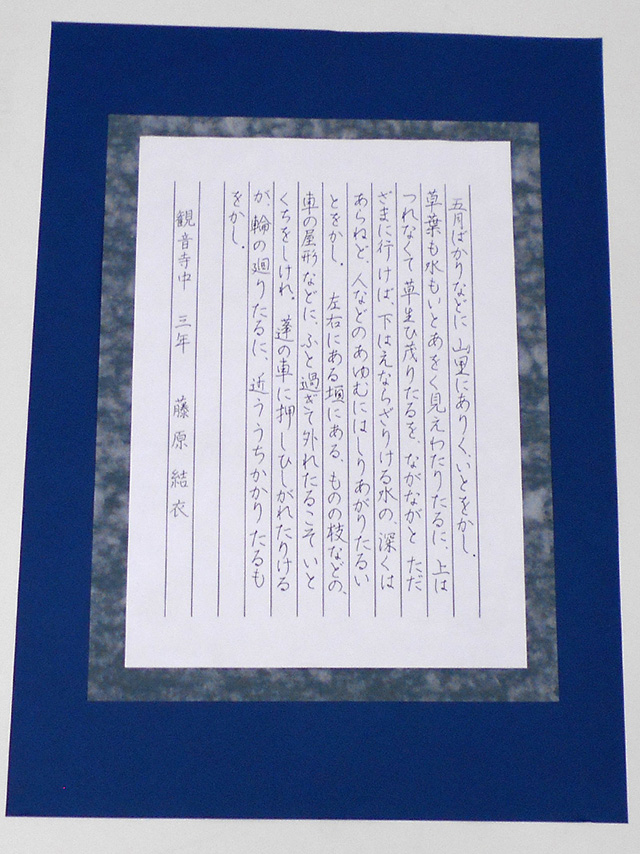 五月ばかりなどに山里にありく、いとをかし。
草葉も水もいとあをく見えわたりたるに、上は
つれなくて草生ひ茂りたるを、ながながと ただ
ざまに行けば、下はえならざりける水の、深くは
あらねど、人などのあゆむにはしりあがりたるい
とをかし。 左右にある垣にある、ものの枝などの、
車の屋形などに、ふと過ぎて外れたるこそ、いと
くちをしけれ。 蓬の車に押しひしがれたりける
が、輪の廻りたるに、近ううちかかりたるも
をかし。
観音寺中 三年 藤原 結衣